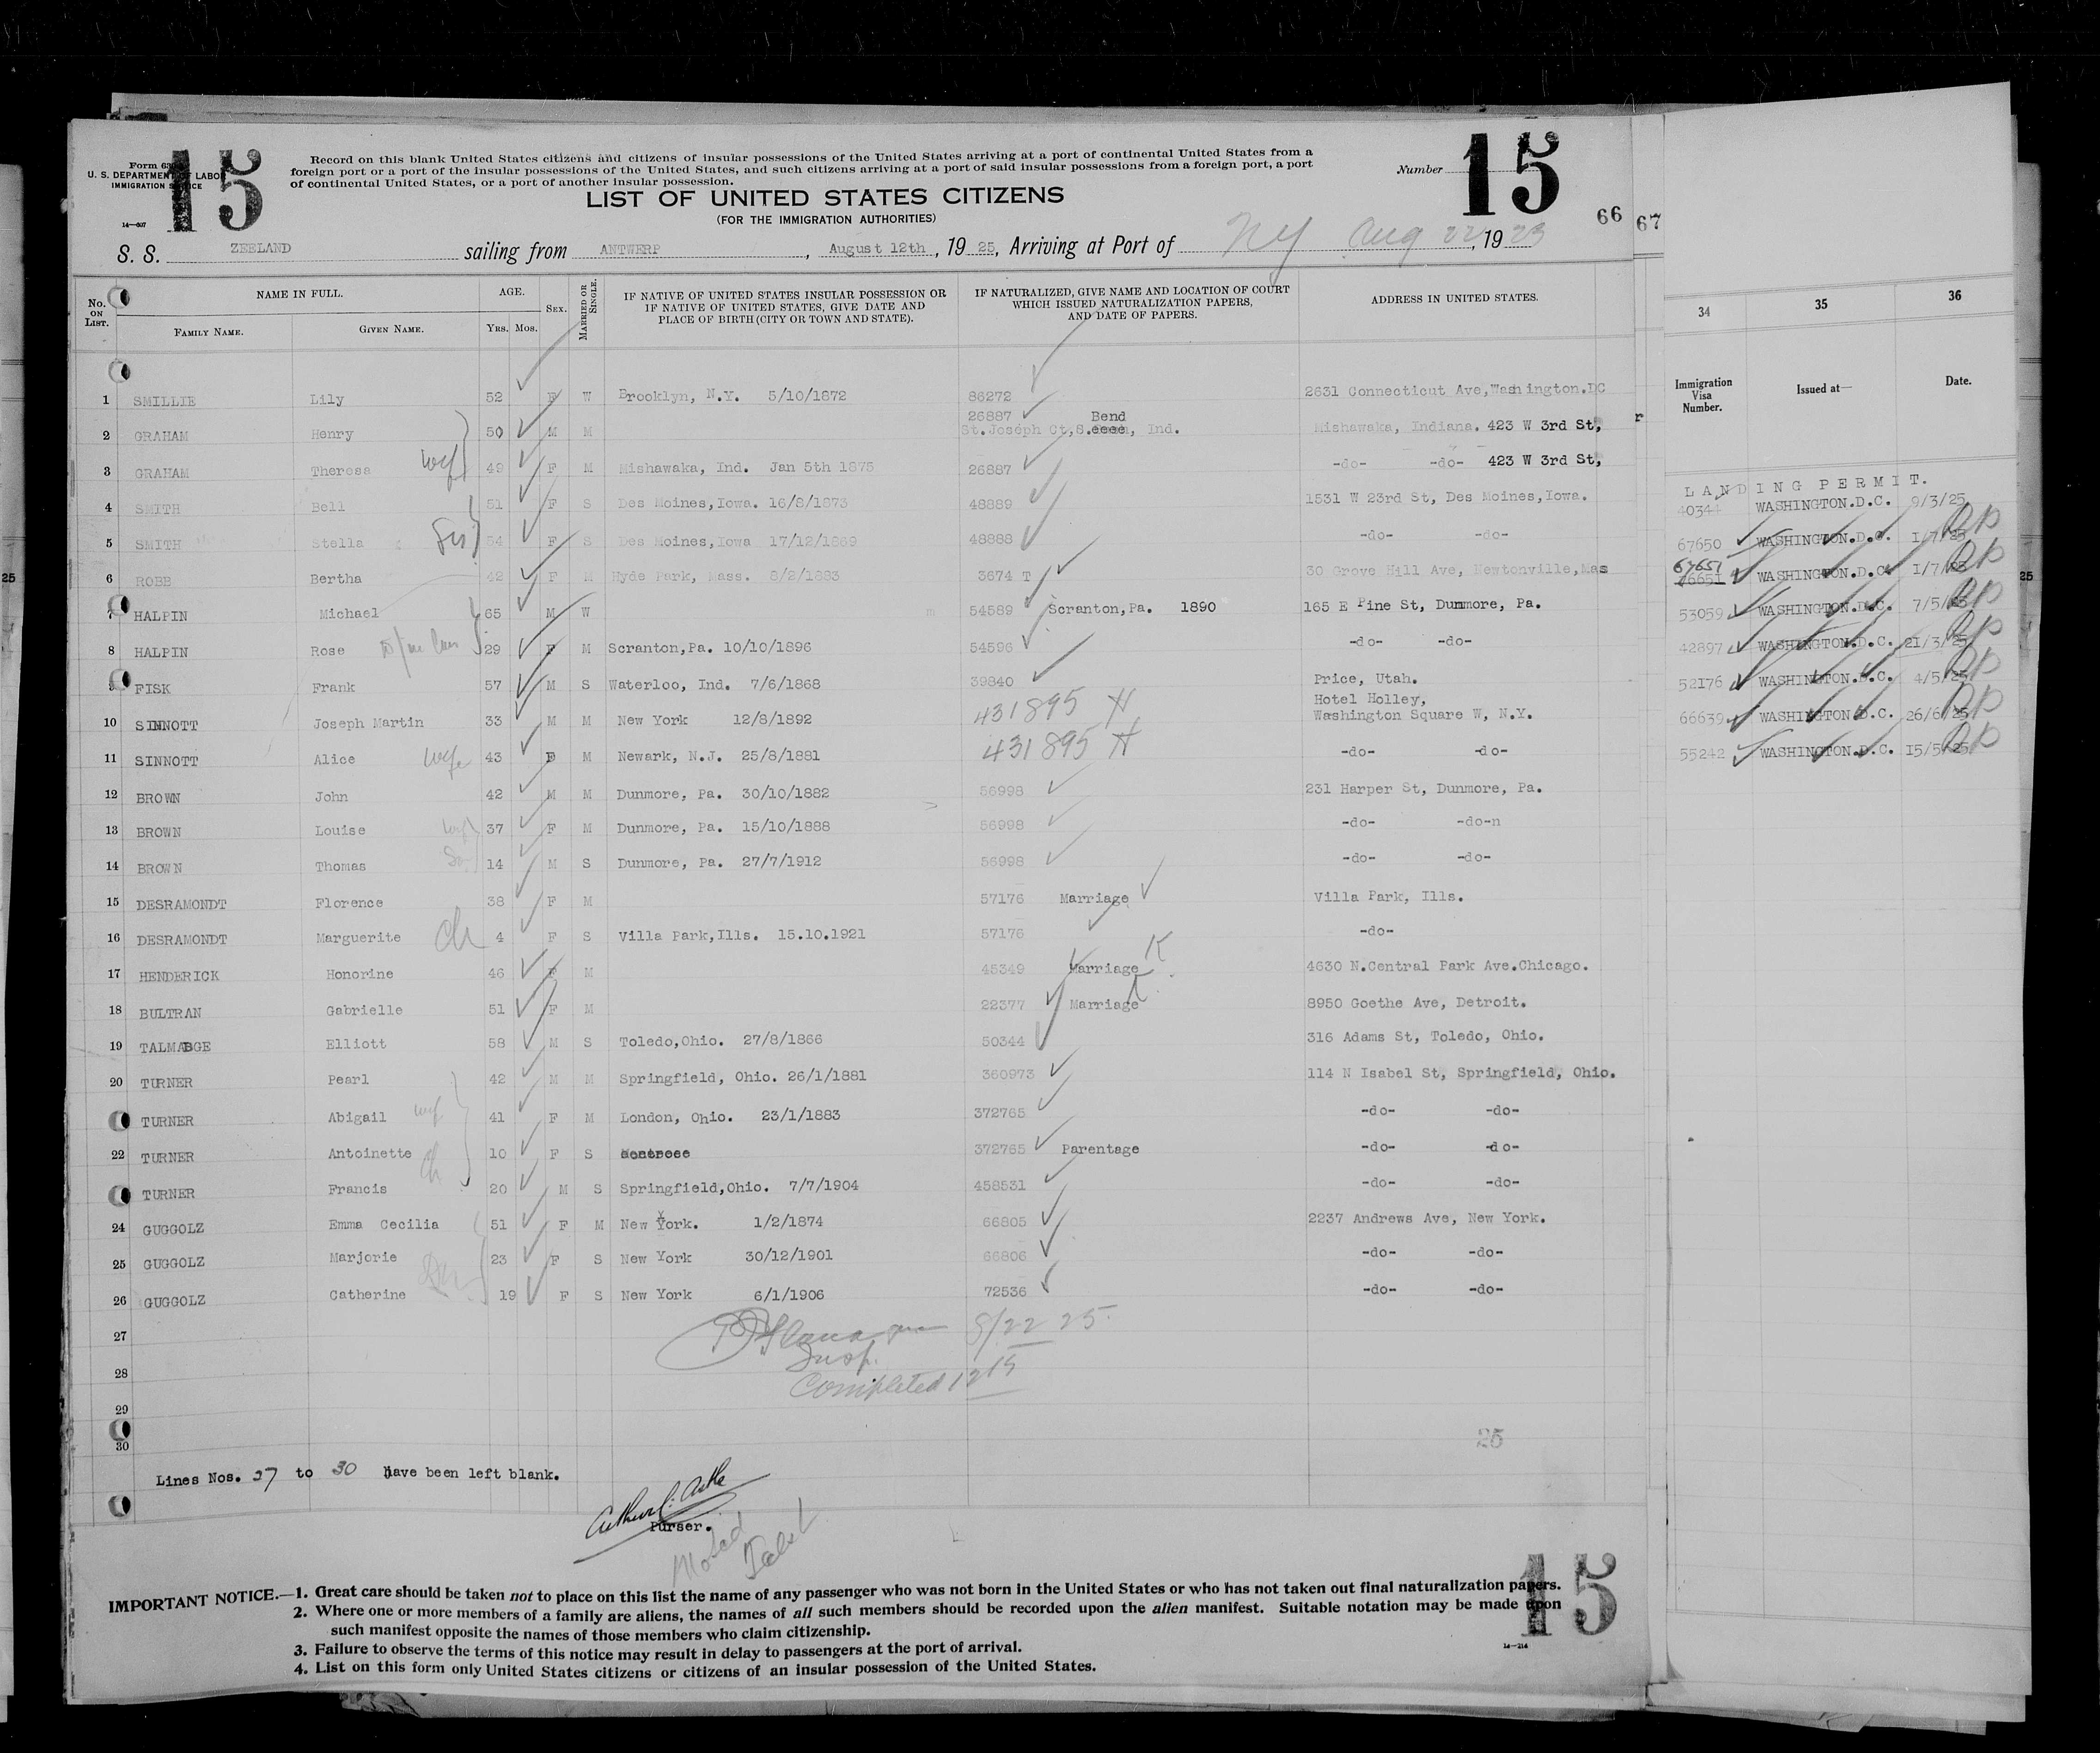 15
Form 630
U. S. DEPARTMENT OF LABOR
IMMIGRATION SERVICE
14—607
Record on this blank United States citizens and citizens of insular possessions of the United States arriving at a port of continental United States from a
foreign port or a port of the insular possessions of the United States, and such citizens arriving at a port of said insular possessions from a foreign port, a port
of continental United States, or a port of another insular possession.
Number 15
LIST OF UNITED STATES CITIZENS
(FOR THE IMMIGRATION AUTHORITIES)
66 67
S. S. ZEELAND sailing from ANTWERP, August 12th, 1925, Arriving at Port of NY Aug 22, 1923
No. ON LIST. NAME IN FULL. FAMILY NAME. GIVEN NAME. AGE. YRS. MOS. SEX. MARRIED OR SINGLE. IF NATIVE OF UNITED STATES INSULAR POSSESSION OR IF NATIVE OF UNITED STATES, GIVE DATE AND PLACE OF BIRTH (CITY OR TOWN AND STATE). IF NATURALIZED, GIVE NAME AND LOCATION OF COURT WHICH ISSUED NATURALIZATION PAPERS, AND DATE OF PAPERS. ADDRESS IN UNITED STATES.
1 SMILLIE Lily 52 F W Brooklyn, N.Y. 5/10/1872 86272 2631 Connecticut Ave,Washington.DC
2 GRAHAM Henry 50 M M 26887 St.Joseph Ct,S. Bend, Ind. Mishawaka, Indiana. 423 W 3rd St,
3 GRAHAM Theresa wf 49 F M Mishawaka, Ind. Jan 5th 1875 26887 -do- -do- 423 W 3rd St,
4 SMITH Bell 51 F S Des Moines,Iowa. 16/8/1873 48889 1531 W 23rd St, Des Moines,Iowa.
5 SMITH Stella Sis 54 F S Des Moines,Iowa 17/12/1869 48888 -do- -do-
6 ROBB Bertha 42 F M Hyde Park, Mass. 8/2/1883 3674 T 30 Grove Hill Ave, Newtonville,Mas
7 HALPIN Michael 65 M W 54589 Scranton,Pa. 1890 165 E Pine St, Dunmore, Pa.
8 HALPIN Rose 29 F M Scranton,Pa. 10/10/1896 54596 -do- -do-
9 FISK Frank 57 M S Waterloo, Ind. 7/6/1868 39840 Price, Utah.
10 SINNOTT Joseph Martin 33 M M New York 12/8/1892 431895 H Hotel Holley, Washington Square W, N.Y.
11 SINNOTT Alice wife 43 F M Newark, N.J. 25/8/1881 431895 H -do- -do-
12 BROWN John 42 M M Dunmore, Pa. 30/10/1882 56998 231 Harper St, Dunmore, Pa.
13 BROWN Louise wf 37 F M Dunmore, Pa. 15/10/1888 56998 -do- -do-n
14 BROWN Thomas 14 M S Dunmore, Pa. 27/7/1912 56998 -do- -do-
15 DESRAMONDT Florence 38 F M 57176 Marriage Villa Park, Ills.
16 DESRAMONDT Marguerite Ch 4 F S Villa Park,Ills. 15.10.1921 57176 -do-
17 HENDERICK Honorine 46 F M 45349 Marriage 4630 N.Central Park Ave.Chicago.
18 BULTRAN Gabrielle 51 F M 22377 Marriage 8950 Goethe Ave, Detroit.
19 TALMADGE Elliott 58 M S Toledo,Ohio. 27/8/1866 50344 316 Adams St, Toledo, Ohio.
20 TURNER Pearl 42 M M Springfield, Ohio. 26/1/1881 360973 114 N Isabel St, Springfield, Ohio.
TURNER Abigail wf 41 F M London, Ohio. 23/1/1883 372765 -do- -do-
22 TURNER Antoinette Ch 10 F S 372765 Parentage -do- -do-
TURNER Francis 20 M S Springfield,Ohio. 7/7/1904 458531 -do- -do-
24 GUGGOLZ Emma Cecilia 51 F M New York. 1/2/1874 66805 2237 Andrews Ave, New York.
25 GUGGOLZ Marjorie 23 F S New York 30/12/1901 66806 -do- -do-
26 GUGGOLZ Catherine 19 F S New York 6/1/1906 72536 -do- -do-
27
8/22 25.
Insp.
28
Completed 12 15
29
30
25
Lines Nos. 27 to 30 have been left blank.
Purser.
IMPORTANT NOTICE.—1. Great care should be taken not to place on this list the name of any passenger who was not born in the United States or who has not taken out final naturalization papers.
2. Where one or more members of a family are aliens, the names of all such members should be recorded upon the alien manifest. Suitable notation may be made upon
such manifest opposite the names of those members who claim citizenship.
3. Failure to observe the terms of this notice may result in delay to passengers at the port of arrival.
4. List on this form only United States citizens or citizens of an insular possession of the United States.
15
14—214
34 35 36
Immigration Visa Number. Issued at— Date.
LANDING PERMIT.
40344 WASHINGTON.D.C. 9/3/25
67650 WASHINGTON.D.C. 1/7/25
67651
WASHINGTON.D.C. 1/7/25
53059 WASHINGTON.D.C. 7/5/25
42897 WASHINGTON.D.C. 21/3/25
52176 WASHINGTON.D.C. 4/5/25
66639 WASHINGTON D.C. 26/6/25
55242 WASHINGTON.D.C. 15/5/25
25
25